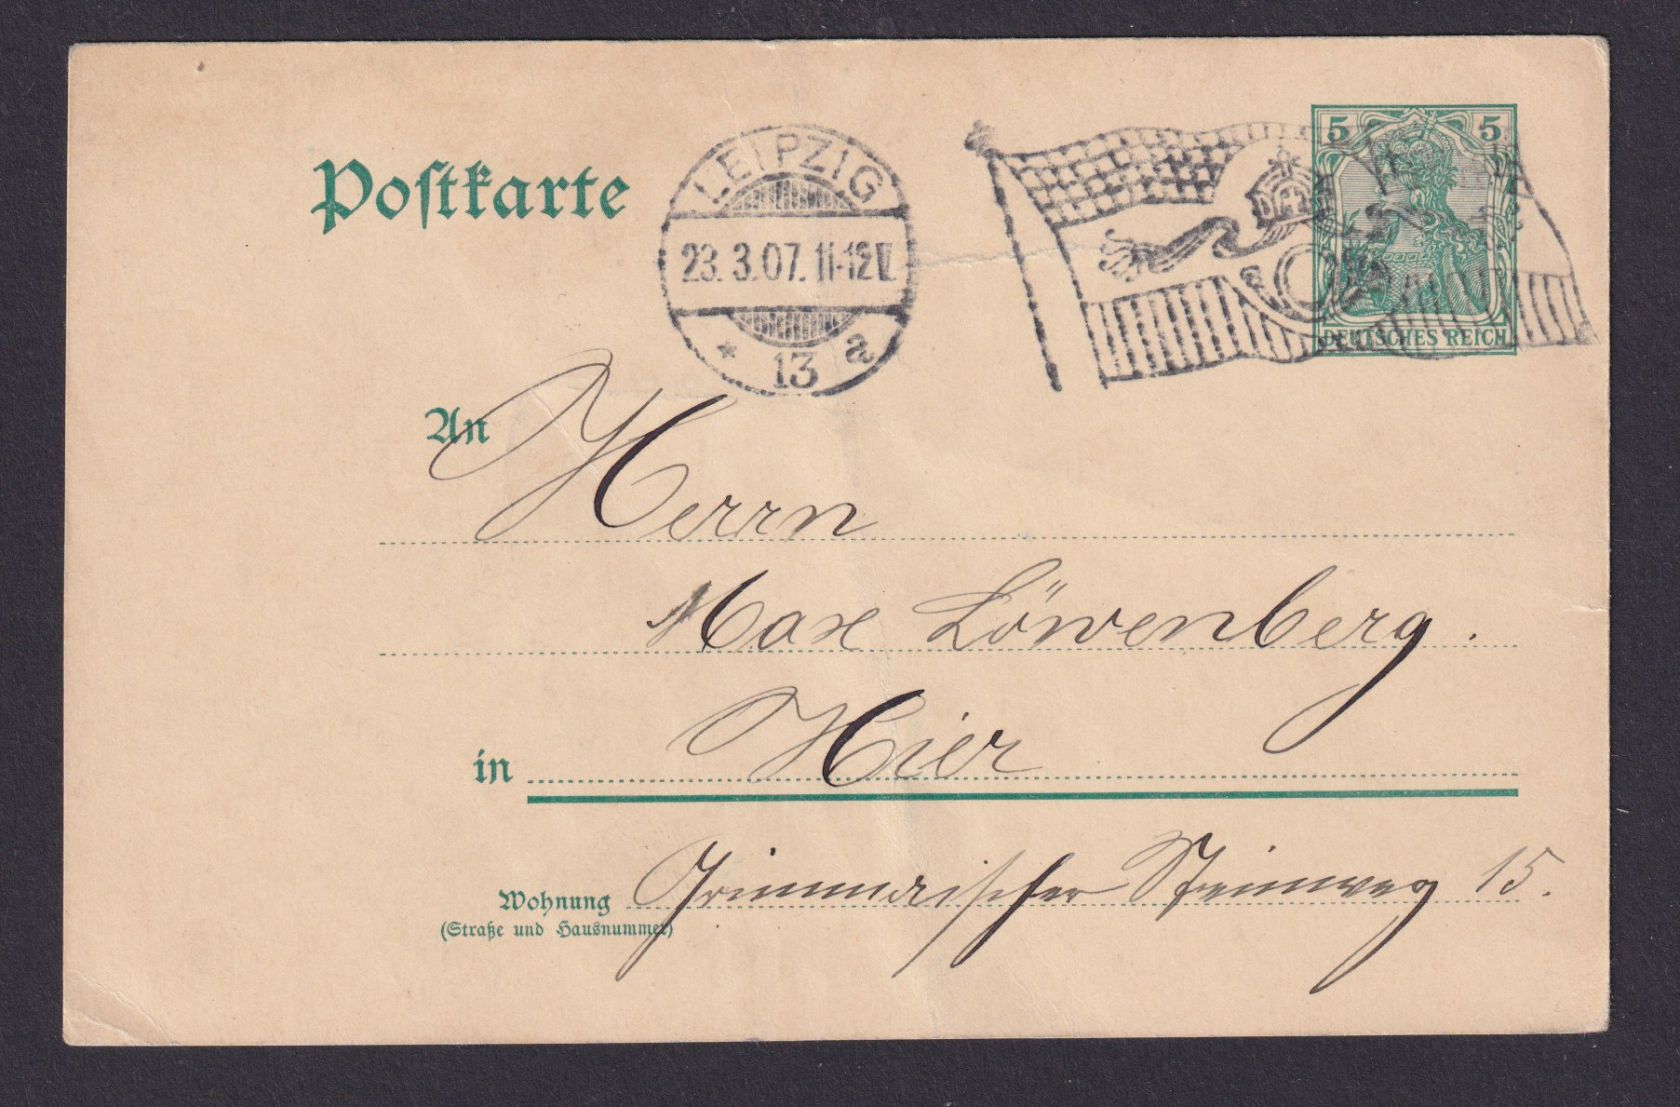 Postkarte
LEIPZIG
23.3.07. 11-12V.
* 13 a
5 5
DEUTSCHES REICH
An
Herrn
Max Löwenberg.
in Hier
Wohnung Grimmaischer Steinweg 15.
(Straße und Hausnummer)